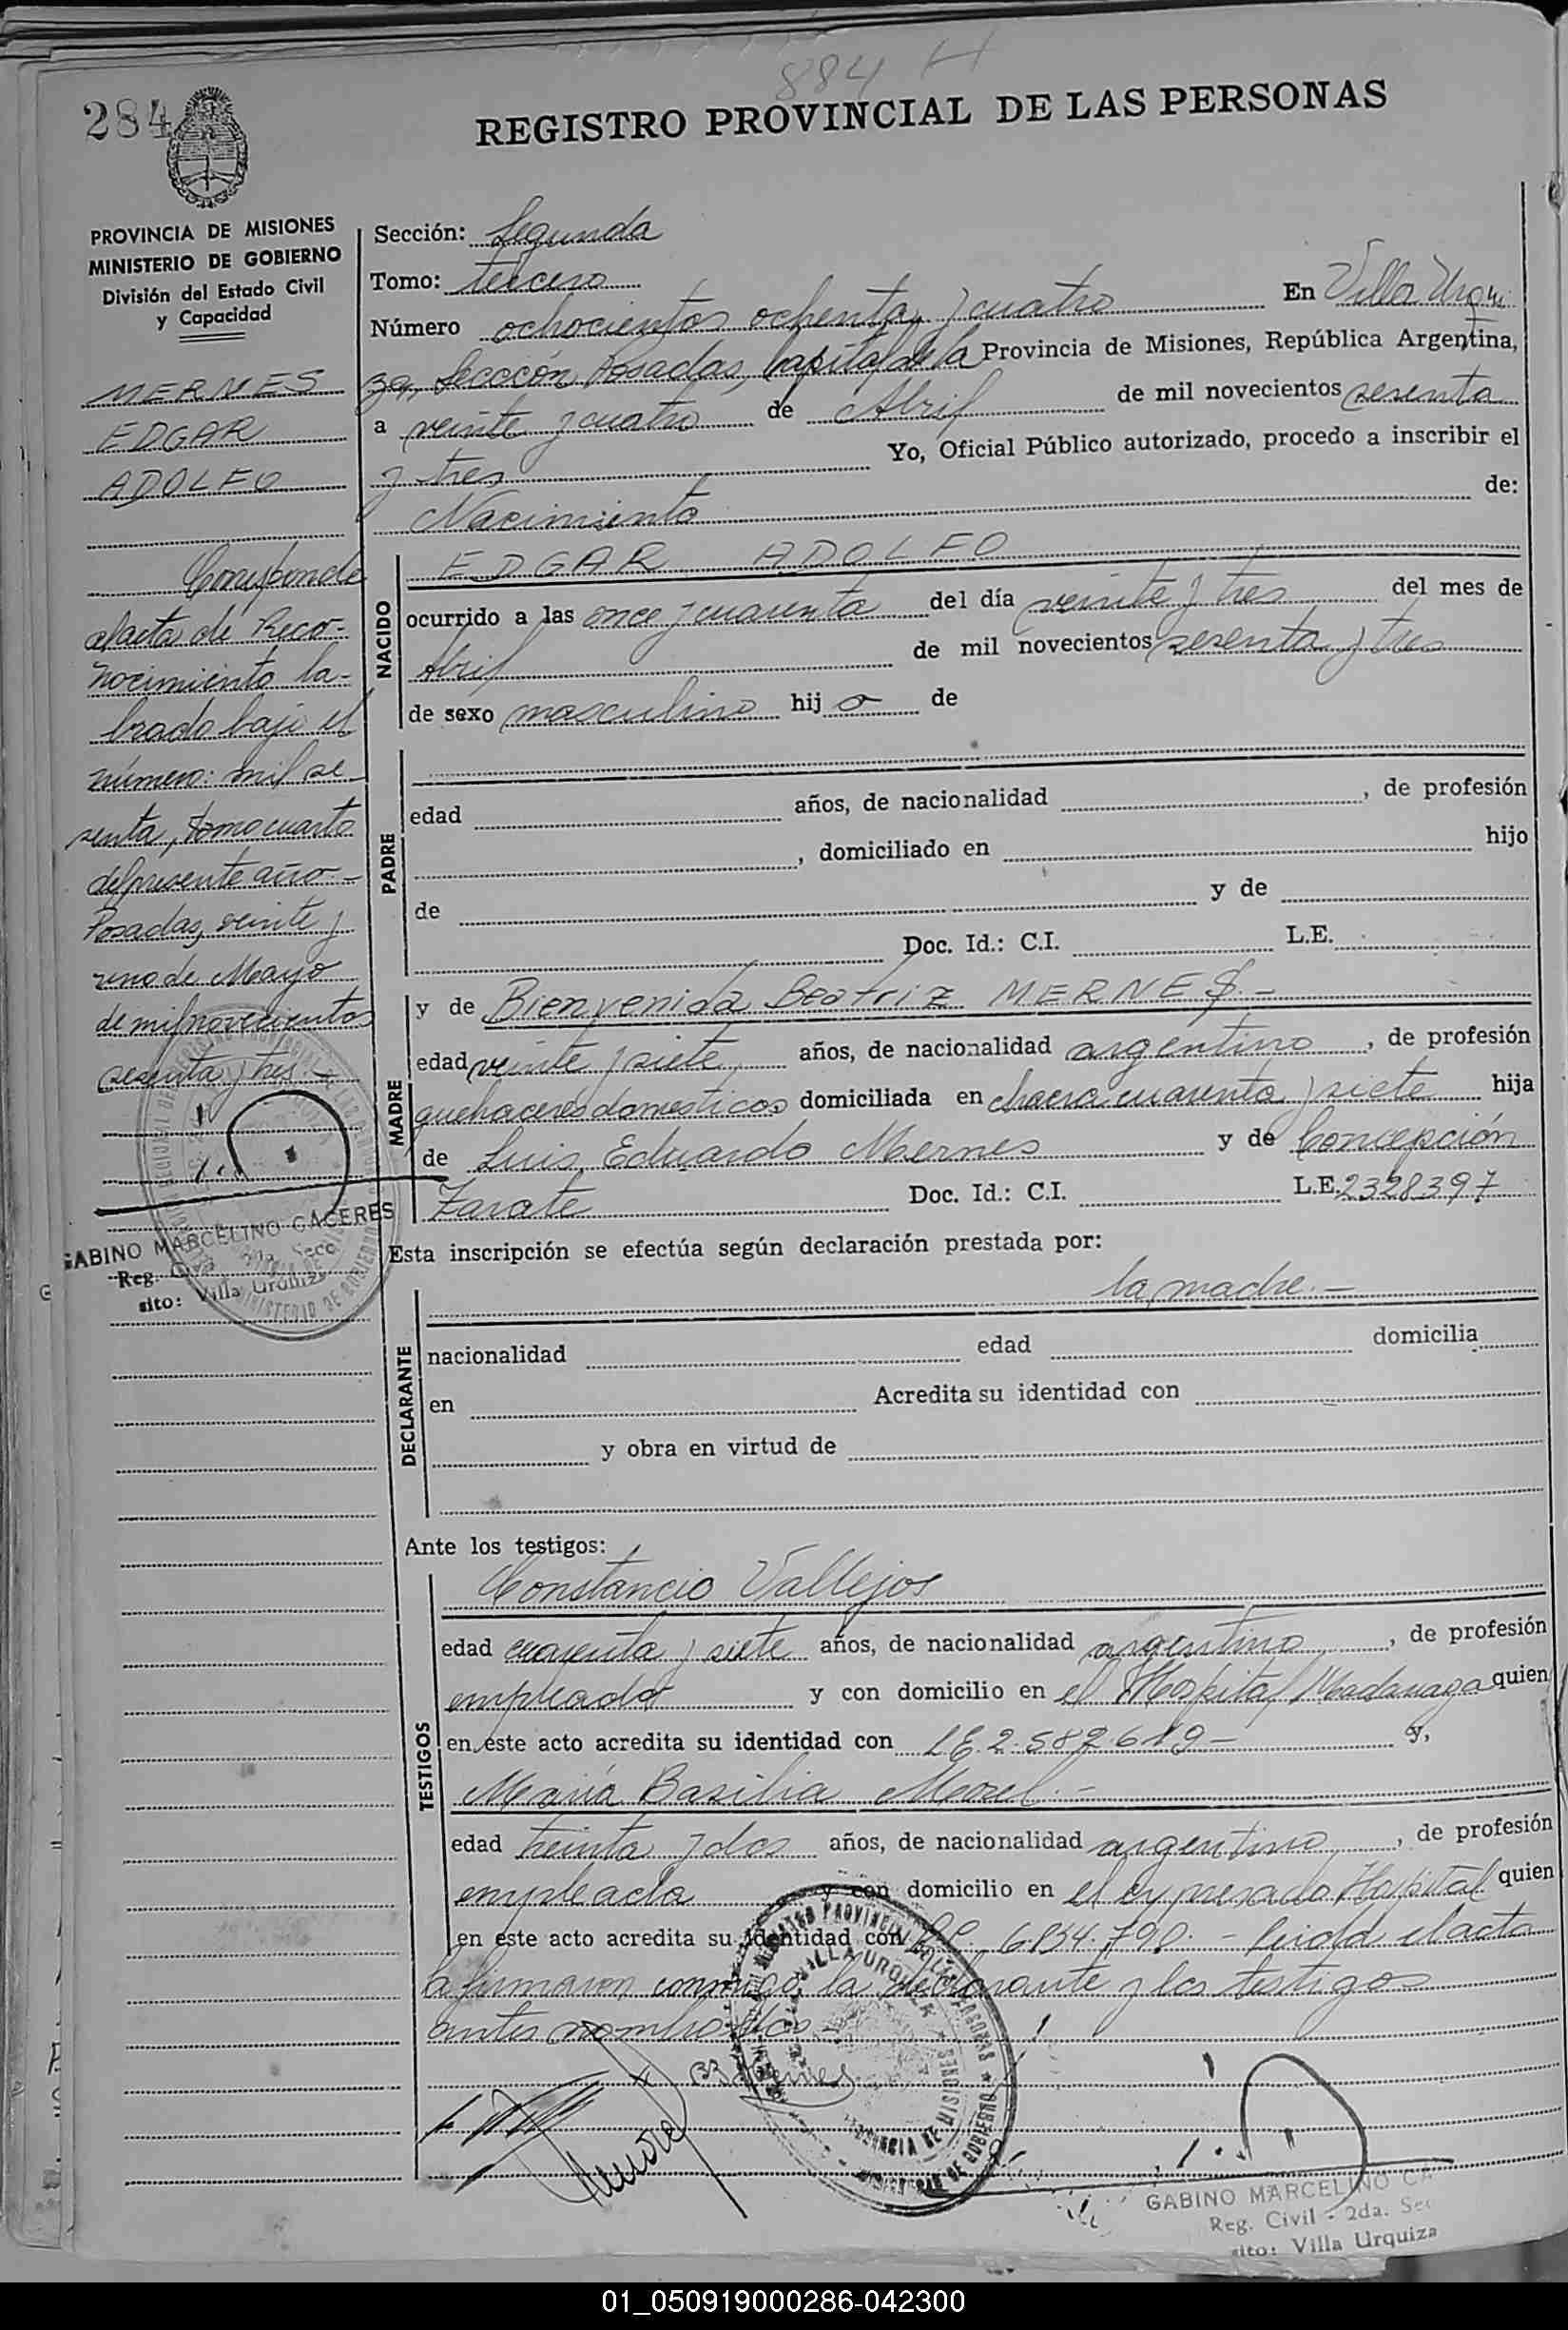 884 H
284
REGISTRO PROVINCIAL DE LAS PERSONAS
PROVINCIA DE MISIONES
MINISTERIO DE GOBIERNO
División del Estado Civil
y Capacidad
MERNES
EDGAR
ADOLFO
Corresponde
al acta de Reco-
nocimiento la-
brado bajo el
número: mil se
senta, tomo cuarto
del presente año.-
Posadas, veinte y
uno de Mayo
de mil novecientos
sesenta y tres.-
GABINO MARCELINO CACERES
Reg. 2da. Secc
sito: Villa Urquiza
Sección: Segunda
Tomo: tercero
Número ochocientos ochenta y cuatro En Villa Urqui
za, Sección Posadas, Capital de la Provincia de Misiones, República Argentina,
a veinte y cuatro de Abril de mil novecientos sesenta
y tres Yo, Oficial Público autorizado, procedo a inscribir el
Nacimiento de:
NACIDO
EDGAR ADOLFO
ocurrido a las once y cuarenta del día veinte y tres del mes de
Abril de mil novecientos sesenta y tres
de sexo masculino hij o de
PADRE
edad años, de nacionalidad , de profesión
, domiciliado en hijo
de y de
Doc. Id.: C.I. L.E.
MADRE
y de Bienvenida Beatriz MERNES.-
edad veinte y siete años, de nacionalidad argentino, de profesión
quehaceres domesticos domiciliada en chacra cuarenta y siete hija
de Luis Eduardo Mernes y de Concepción
Zarate Doc. Id.: C.I. L.E. 2328397
Esta inscripción se efectúa según declaración prestada por:
DECLARANTE
la madre.-
nacionalidad edad domicilia
en Acredita su identidad con
y obra en virtud de
Ante los testigos:
TESTIGOS
Constancio Vallejos
edad cuarenta y siete años, de nacionalidad argentino, de profesión
empleado y con domicilio en el Hospital Madariaga quien
en este acto acredita su identidad con LE. 2.582.619- y,
María Basilia Morel.-
edad treinta y dos años, de nacionalidad argentino, de profesión
empleada y con domicilio en el expresado Hospital quien
en este acto acredita su identidad con 6.834.790.- Leida el acta
la firmaron conmigo, la declarante y los testigos
antes nombrados
B Mernes
GABINO MARCELINO CA
Reg. Civil - 2da. Sec
sito: Villa Urquiza
01_050919000286-042300